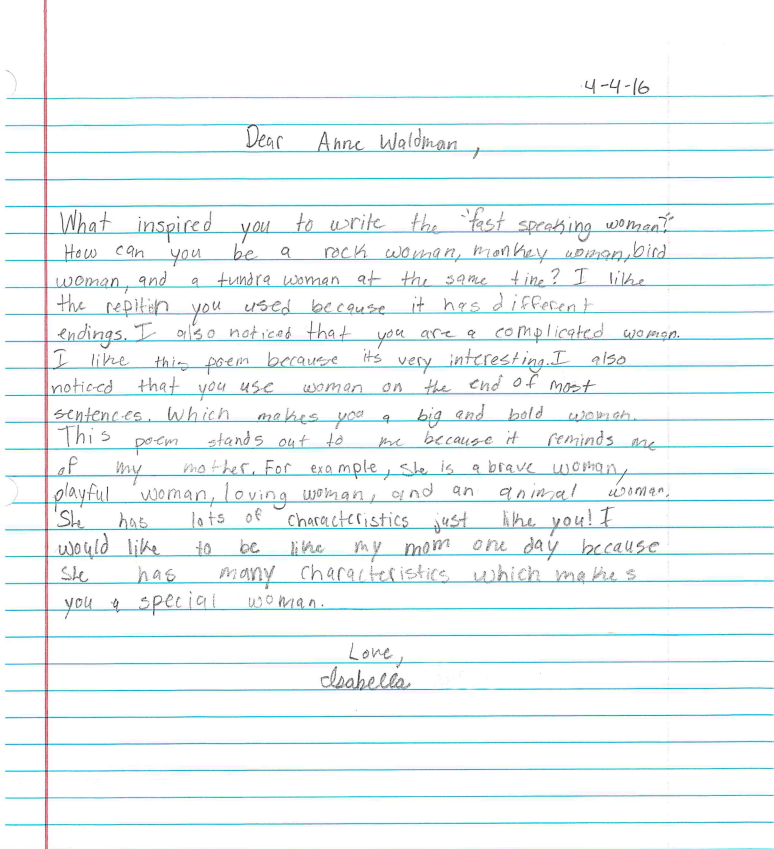 4-4-16
Dear Anne Waldman,
What inspired you to write the "fast speaking woman?"
How can you be a rock woman, monkey woman, bird
woman, and a tundra woman at the same tine? I like
the repitien you used because it has different
endings. I also noticed that you are a complicated woman.
I like this poem because its very interesting. I also
noticed that you use woman on the end of most
sentences. Which makes you a big and bold woman.
This poem stands out to me because it reminds me
of my mother. For example, she is a brave woman,
playful woman, loving woman, and an animal woman.
She has lots of characteristics just like you! I
would like to be like my mom one day because
she has many characteristics which makes
you a special woman.
Love,
Isabella